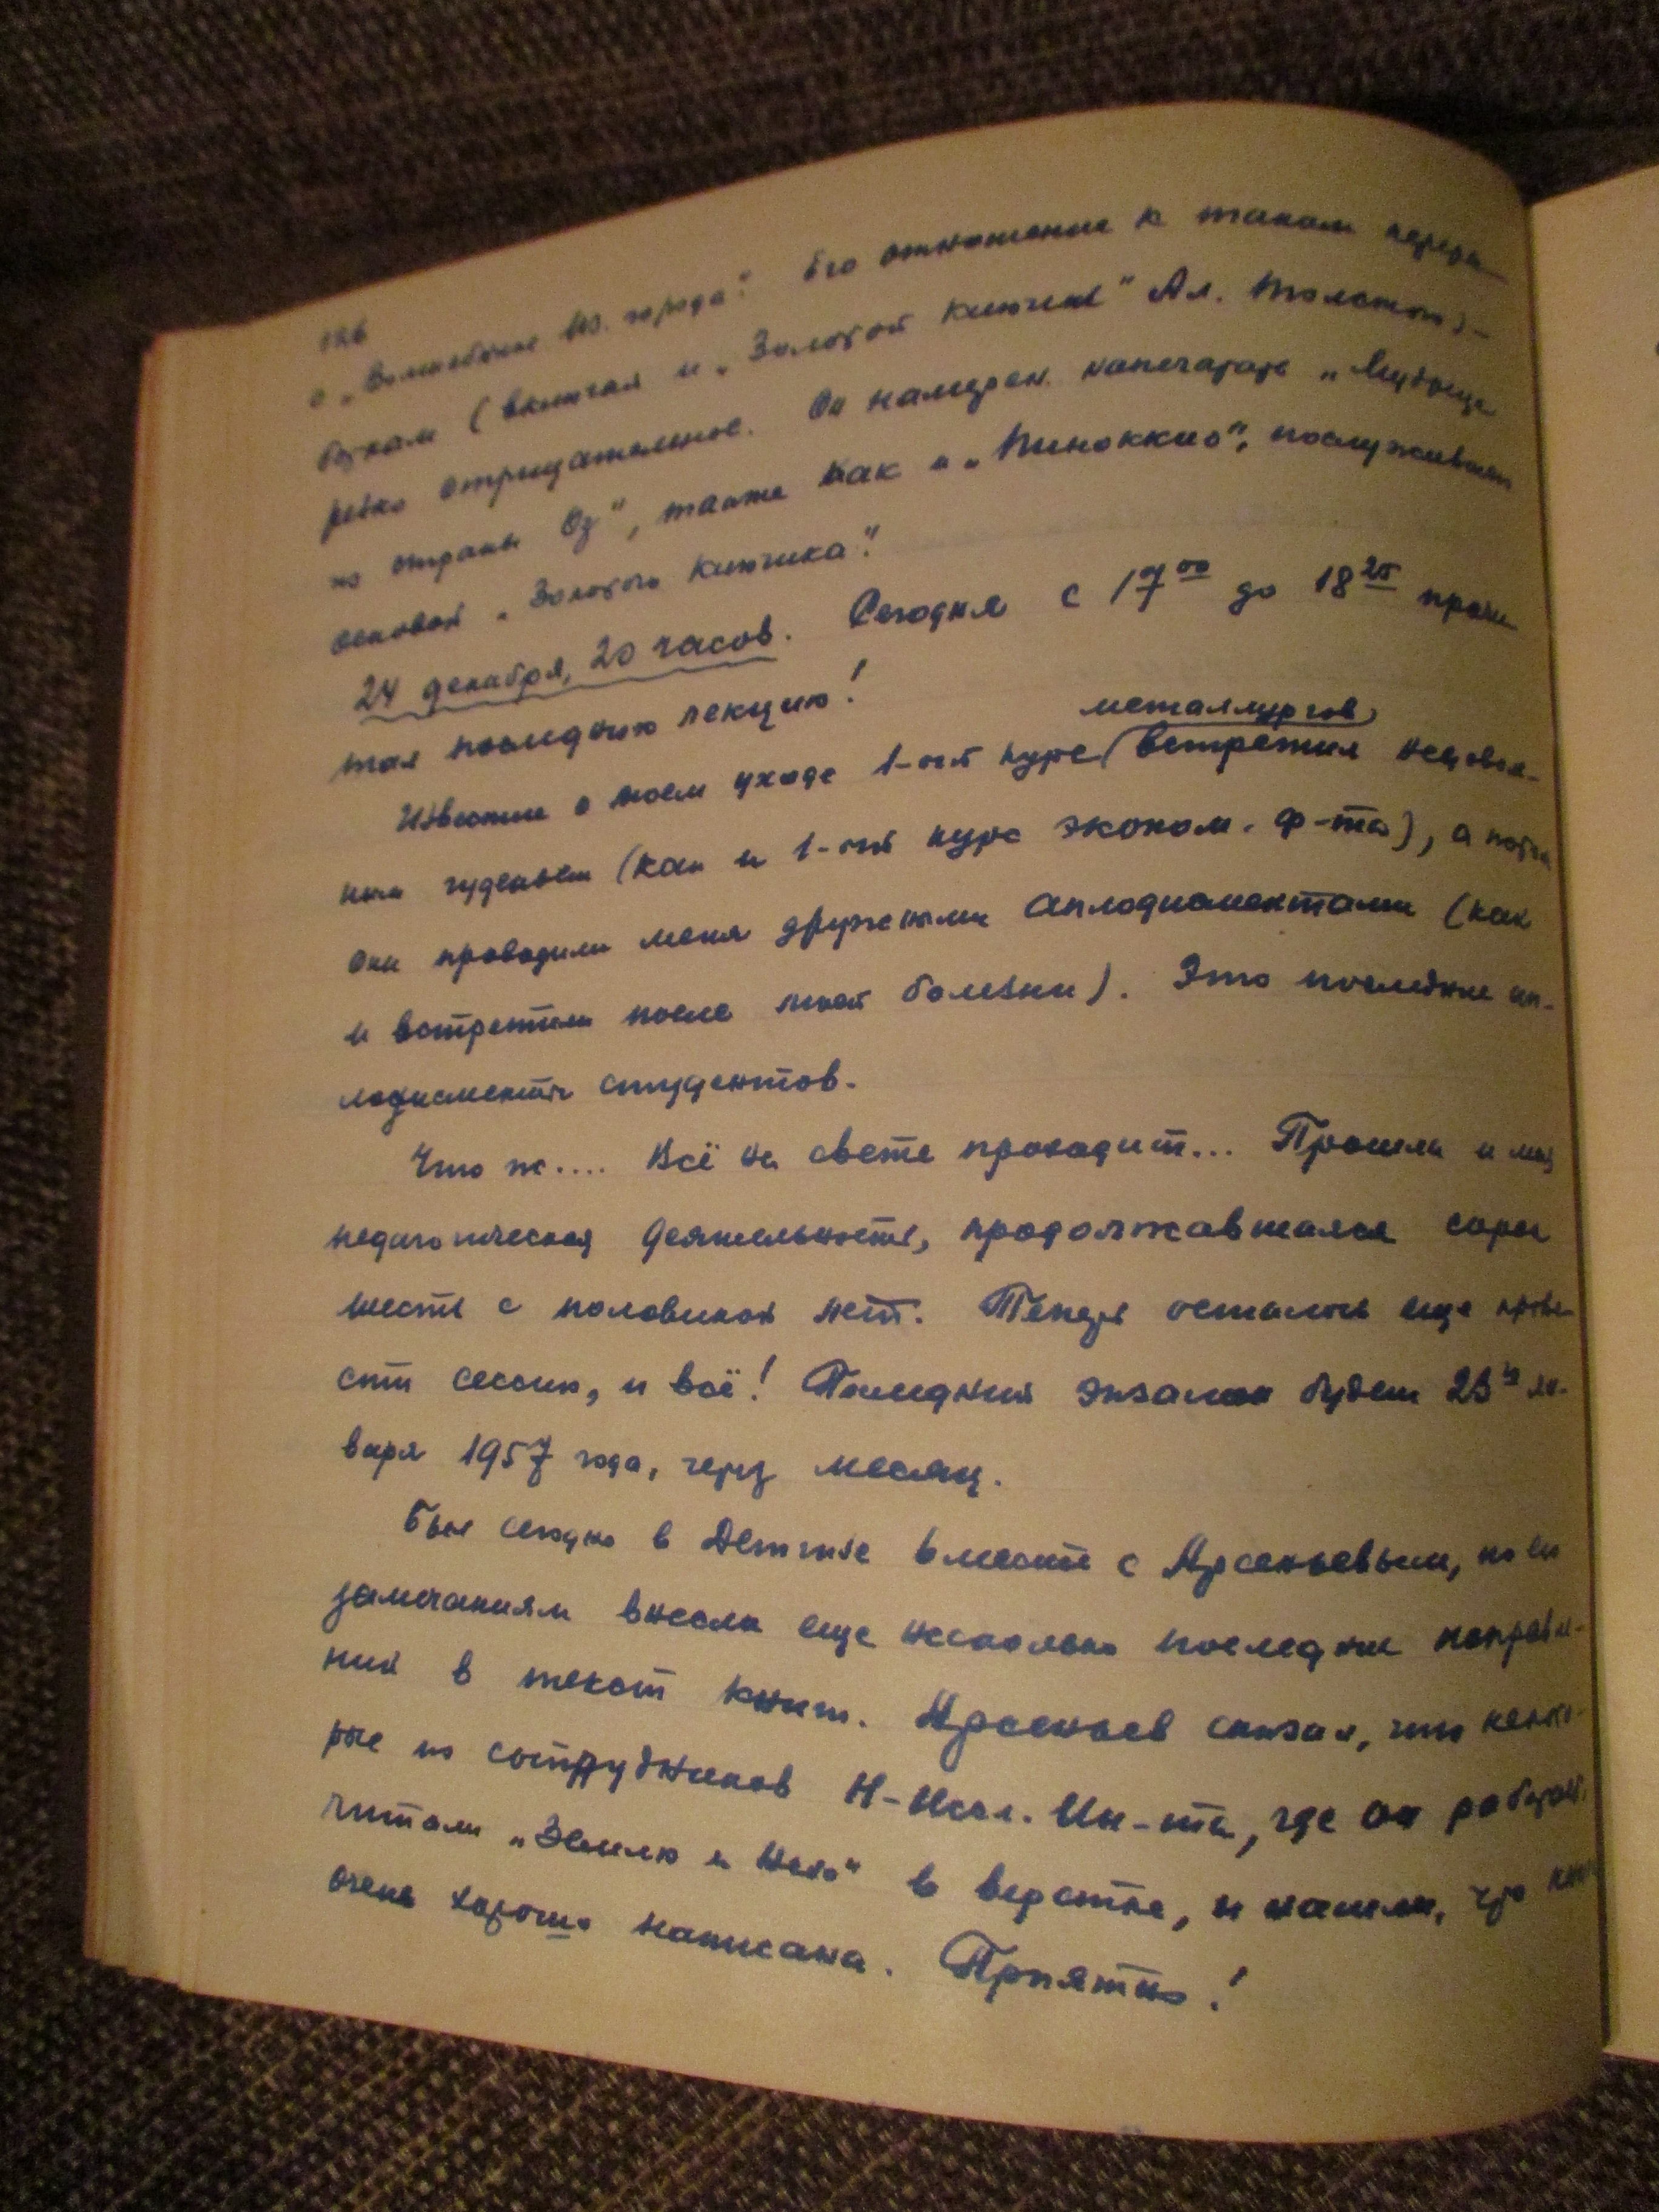 126
о „Волшебнике Из. города". Его отношение к таким перера-
боткам (включая и „Золотой Ключик" Ал. Толстого) –
резко отрицательное. Он намерен напечатать „Мудреца
из страны Оз", также как и „Пиноккио", послуживший
основой „Золотого Ключика".
24 декабря, 20 часов. Сегодня с 17⁰⁰ до 18²⁵ прочи-
тал последнюю лекцию!
металлургов
Известие о моем уходе 1-ый курс встретил недоволь-
ным гуденьем (как и 1-ый курс эконом. ф-та), а потом
они проводили меня дружными аплодисментами (как
и встретили после моей болезни). Это последние ап-
лодисменты студентов.
Что ж.... Всё на свете проходит... Прошла и моя
педагогическая деятельность, продолжавшаяся сорок
шесть с половиной лет. Теперь осталось еще прове-
сти сессию, и всё! Последний экзамен будет 23ᵍ ян-
варя 1957 года, через месяц.
Был сегодня в Детгизе вместе с Арсеньевым, по его
замечаниям внесли еще несколько последние исправле-
ний в текст книги. Арсеньев сказал, что некото-
рые из сотрудников Н-Иссл. Ин-та, где он работает,
читали „Землю и Небо" в верстке, и нашли, что книга
очень хорошо написана. Приятно!